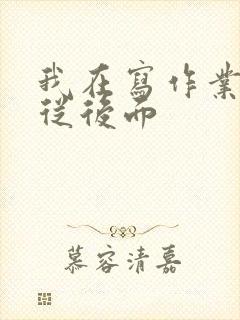 我在寫作業
從後而
慕容清嘉